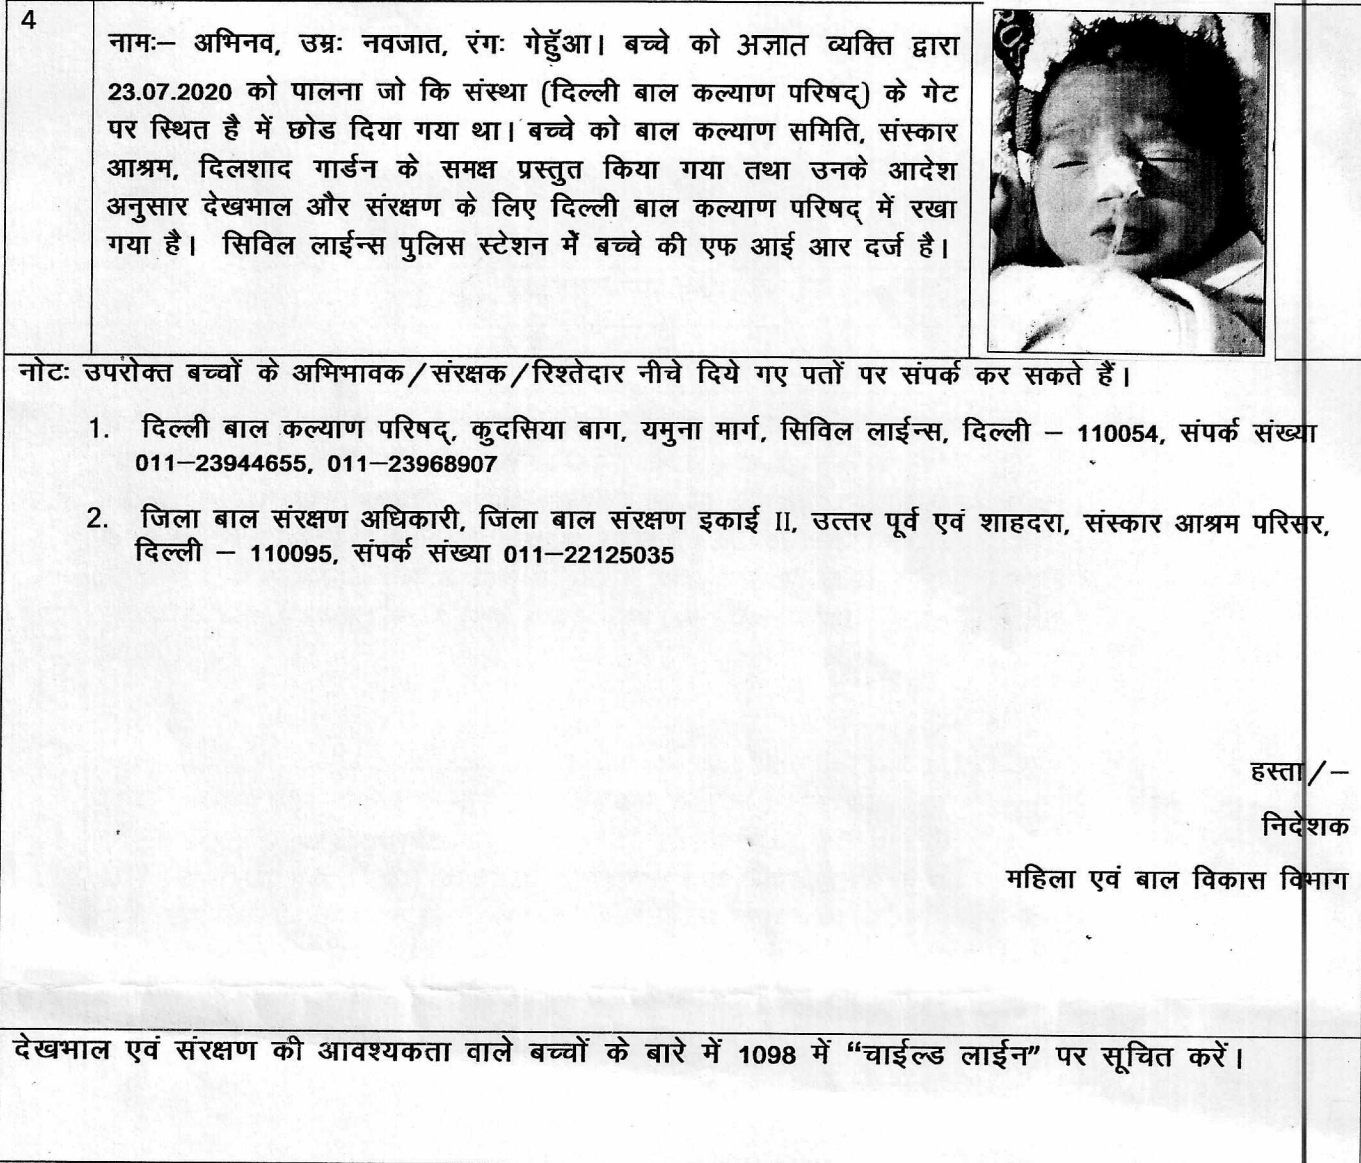 4
नामः– अभिनव, उम्रः नवजात, रंगः गेहुँआ। बच्चे को अज्ञात व्यक्ति द्वारा
23.07.2020 को पालना जो कि संस्था (दिल्ली बाल कल्याण परिषद्) के गेट
पर स्थित है में छोड दिया गया था। बच्चे को बाल कल्याण समिति, संस्कार
आश्रम, दिलशाद गार्डन के समक्ष प्रस्तुत किया गया तथा उनके आदेश
अनुसार देखभाल और संरक्षण के लिए दिल्ली बाल कल्याण परिषद् में रखा
गया है। सिविल लाईन्स पुलिस स्टेशन में बच्चे की एफ आई आर दर्ज है।
नोटः उपरोक्त बच्चों के अभिभावक/संरक्षक/रिश्तेदार नीचे दिये गए पतों पर संपर्क कर सकते हैं।
1. दिल्ली बाल कल्याण परिषद्, कुदसिया बाग, यमुना मार्ग, सिविल लाईन्स, दिल्ली – 110054, संपर्क संख्या
011–23944655, 011–23968907
2. जिला बाल संरक्षण अधिकारी, जिला बाल संरक्षण इकाई II, उत्तर पूर्व एवं शाहदरा, संस्कार आश्रम परिसर,
दिल्ली – 110095, संपर्क संख्या 011–22125035
हस्ता/–
निदेशक
महिला एवं बाल विकास विभाग
देखभाल एवं संरक्षण की आवश्यकता वाले बच्चों के बारे में 1098 में “चाईल्ड लाईन” पर सूचित करें।